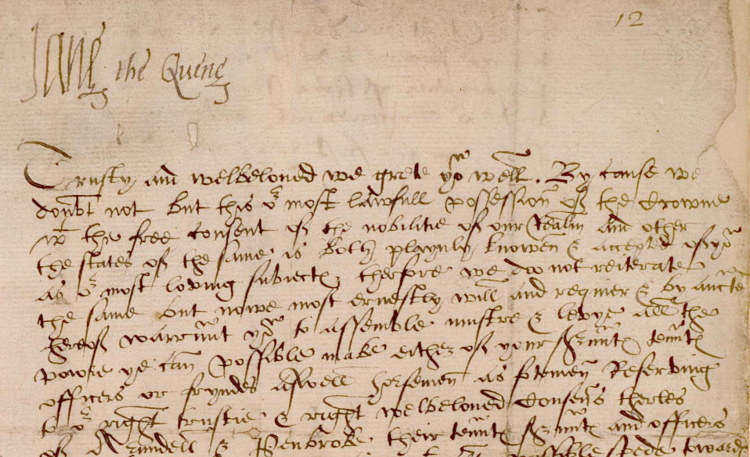 12
Jane the Quene
Trusty and welbeloved we grete yoᵘ well. By cause we
doubt not but this oʳ most lawfull possession of the Crowne
wᵗ the free consent of the nobilitie of our Realm and other
the states of the same is both playnly knowen & accepted of yoᵘ
as oʳ most loving subiects therfore we do not reiterate
the same but nowe most ernestly will and requier & by aucte
therof warrᵃnt yoᵘ to assemble mustre & levye all the
powre ye can possible make either of your servᵃnts tenᵃnts
officers or fryndes aswell horsemen as fotemen Reserving
to oʳ right trustie & right welbeloved Cousens therles
of Arundell & Penbroke their tenᵃnts servᵃnts and officers
possible spede towards